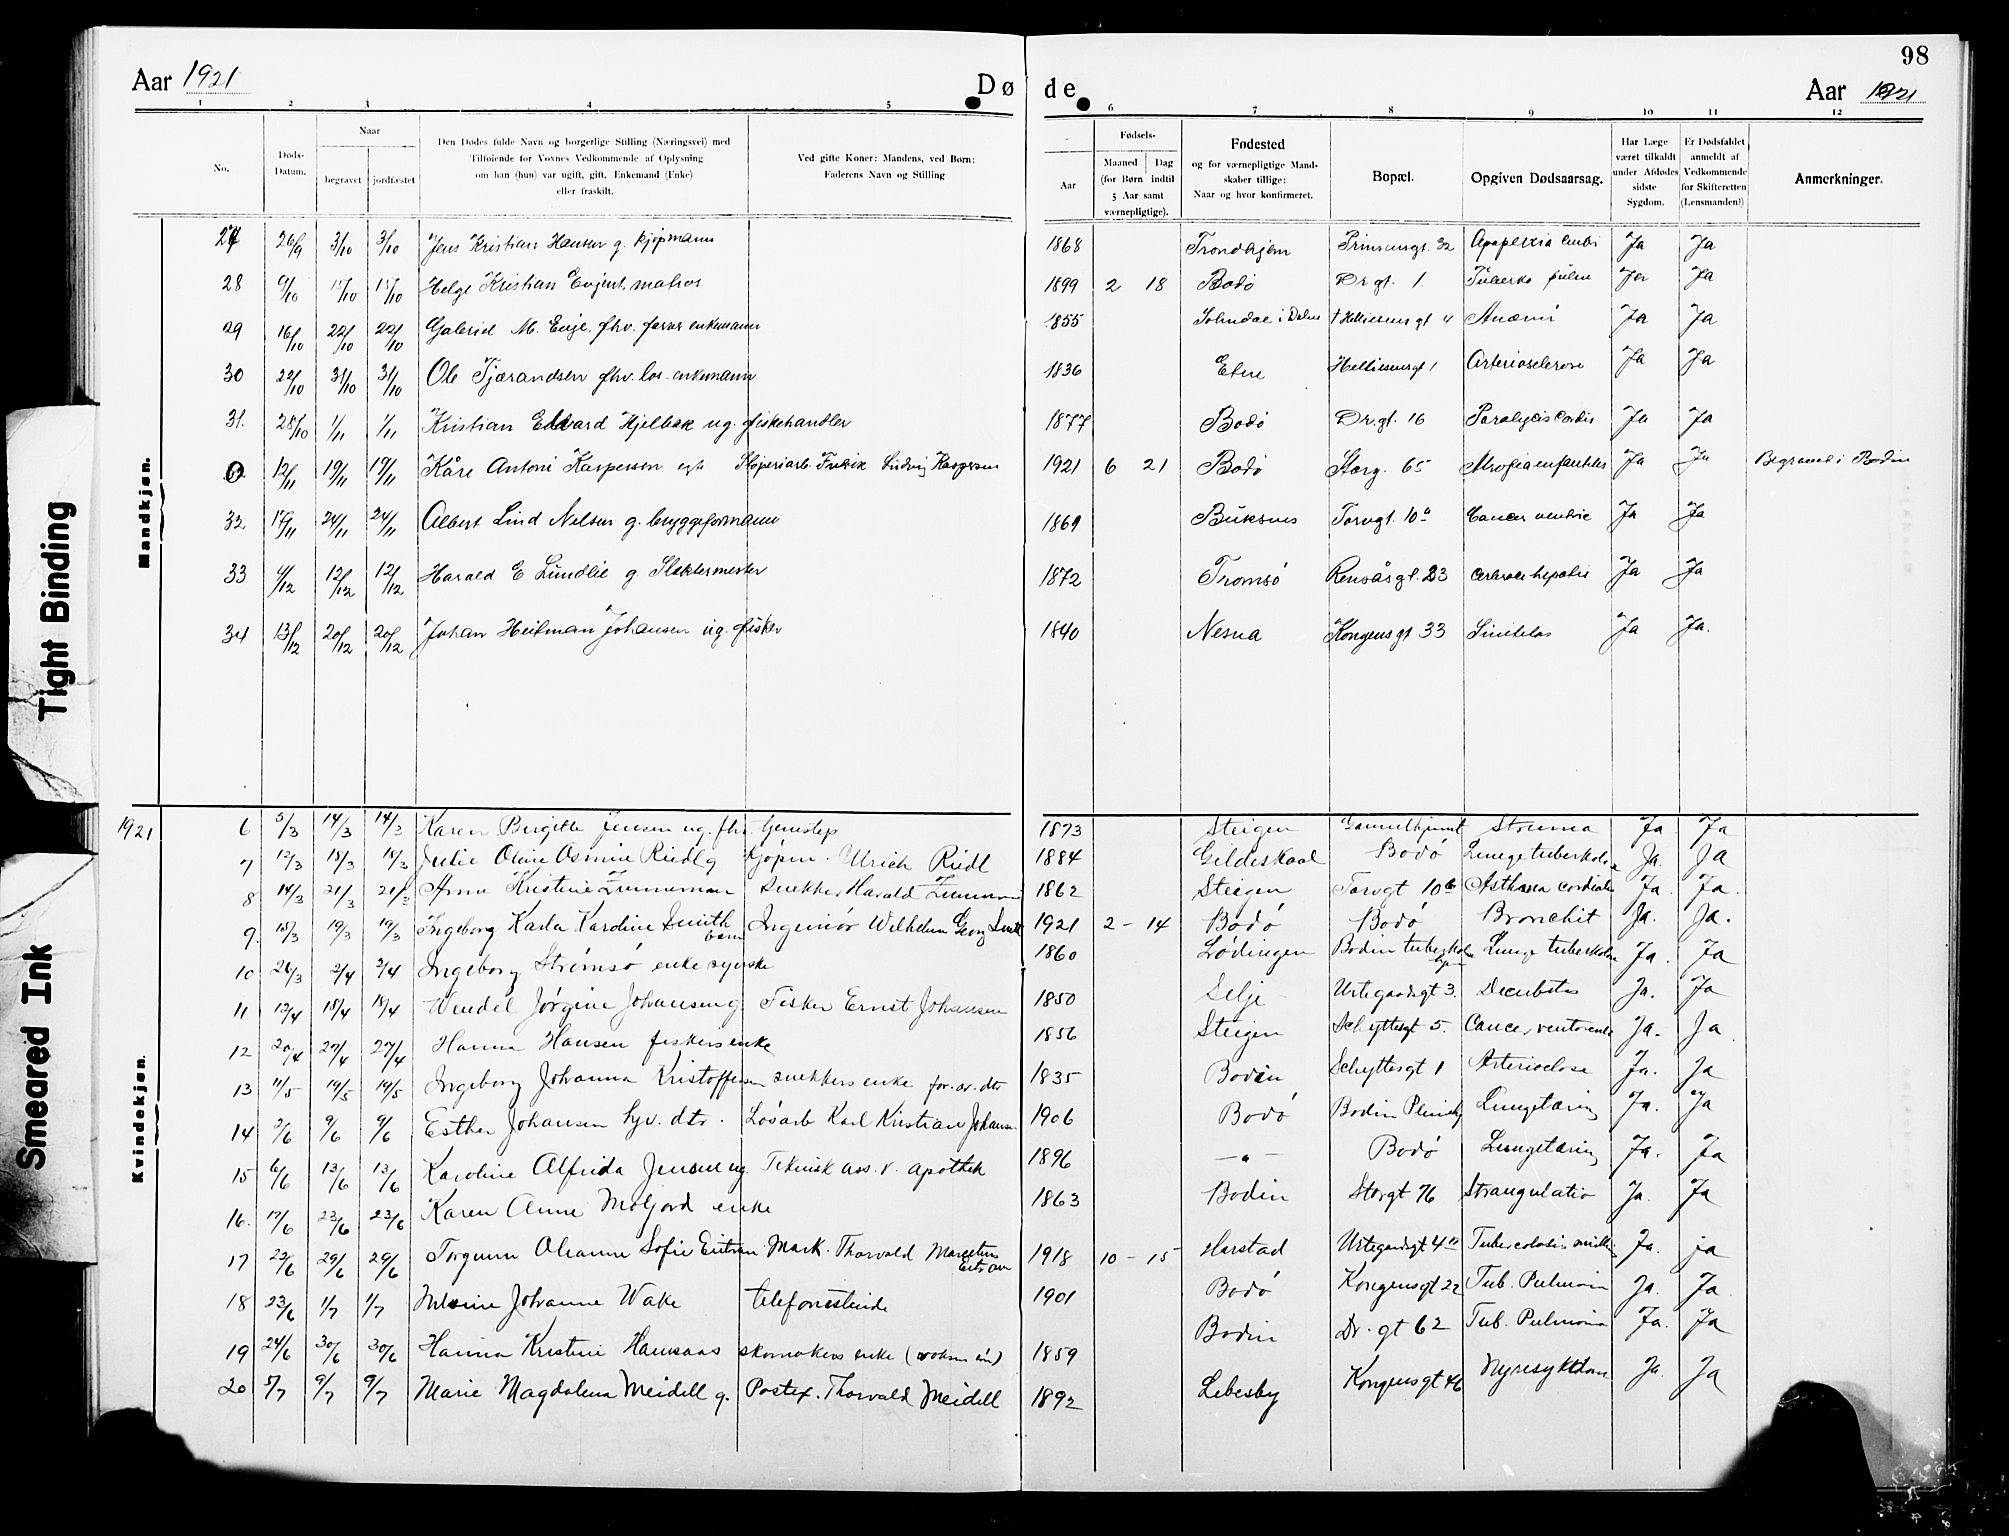 98
Aar 1921 Døde Aar 1921
1 2 3 4 5 6 7 8 9 10 11 12
No.
Døds-Datum.
Naar
begravet jordfæstet
Den Dødes fulde Navn og borgerlige Stilling (Næringsvei) med
Tilføiende for Voxnes Vedkommende af Oplysning
om han (hun) var ugift, gift, Enkemand (Enke)
eller fraskilt.
Ved gifte Koner: Mandens, ved Børn:
Faderens Navn og Stilling
Fødsels-
Aar
Maaned Dag
(for Børn indtil
5 Aar samt
værnepligtige).
Fødested
og for værnepligtige Mand-
skaber tillige:
Naar og hvor konfirmeret.
Bopæl.
Opgiven Dødsaarsag.
Har Læge
været tilkaldt
under Afdødes
sidste
Sygdom.
Er Dødsfaldet
anmeldt af
Vedkommende
for Skifteretten
(Lensmanden?)
Anmerkninger.
Mandkjøn.
27 26/9 3/10 3/10 Jens Kristian Hansen g. kjøpmann 1868 Trondhjem Prinsensgt. 32 Ja Ja
28 9/10 15/10 15/10 Helge Kristian Evjent matros 1899 2 18 Bodø Dr gt. 1 Ja Ja
29 16/10 22/10 22/10 Gabriel M. Enge fhv. farver enkemann 1855 Helliesensgt 4 Anæmi Ja Ja
30 22/10 31/10 31/10 Ole Tjærandsen fhv. los enkemann 1836 Etne Helliesensgt 1 Arteriosclerose Ja Ja
31. 28/10 1/11 1/11 Kristian Edvard Hjelbak ug. fiskehandler 1877 Bodø Dr.gt. 16 Paralysis Cordis Ja Ja
0. 12/11 19/11 19/11 Kåre Antoni Kaspersen egt. Sløperiarb. Fredrik Ludvig Kaspersen 1921 6 21 Bodø Storg. 65 Ja Ja Begravet i Bodin
32. 17/11 24/11 24/11 Albert Lind Nelsen g. bryggeformann 1869 Buksnes Torvgt. 10a Cancer ventric Ja Ja
33 4/12 12/12 12/12 Harald E Lundlie g. Slaktermester 1872 Tromsø Rensåsgt. 23 hepatis Ja Ja
34 13/12 20/12 20/12 Johan Heitman Johansen ug. fisker 1840 Nesna Kongensgt 33 Ja Ja.
Kvindekjøn.
1921 6 5/3 14/3 14/3 Karen Birgitte Jensen ug. fhv. tjenestep 1873 Steigen Gamlehjemmet Struma Ja Ja
7 12/3 18/3 18/3 Julie Oline Osmine Riedl g Kjøpm. Ulrich Riedl 1884 Gildeskaal Bodø Lungetuberkulose Ja. Ja
8 14/3 21/3 21/3 Anne Kristine Zimmerman snekker Harald Zimmerm 1862 Steigen Torvgt 10b Asthma cordiale Ja. Ja.
9. 15/3 19/3 19/3 Ingeborg Karla Karoline Smith barn Ingeniør Wilhelm Georg Smith 1921 2 - 14 Bodø Bodø Bronchit Ja. Ja.
10 26/3 2/4 2/4 Ingeborg Strømsø enke syerske 1860 Lødingen Bodin tuberkulosehjem Lunge tuberkulose Ja. Ja
11 12/4 18/4 18/4 Wendel Jørgine Johansen g. Fisker Ernst Johansen 1850 Selje Urtegaardsgt 3. Decubitus Ja. Ja
12 20/4 27/4 27/4 Hanna Hansen fiskers enke 1856 Steigen Schyttesgt 5. Cancer ventricule Ja. Ja
13 11/5 19/5 19/5 Ingeborg Johanna Kristoffersen snekkers enke for. av. dtr 1835 Bodin Schyttesgt 1 Arteriosclose Ja. Ja
14 2/6 9/6 9/6 Esther Johansen hjv. dtr. Løsarb Karl Kristian Johansen 1906 Bodø Bodin Pleiehj Lungetæring Ja. Ja
15 6/6 13/6 13/6 Karoline Alfrida Jensen ug. Teknisk ass. v. apothek 1896 — " — Bodø Lungetæring Ja. Ja
16. 17/6 23/6 23/6 Karen Anne Moljord enke 1863 Bodin Storgt 76 Strangulatio Ja. Ja
17 22/6 29/6 29/6 Torgunn Ovianne Sofie Eitran Mask. Thorvald Martinus Eitran 1918 10 - 15 Harstad Urtegardsgt 4 Tuberculosis miliaris Ja. ja
18 23/6 1/7 1/7 Johanne Wake telefonistinde 1901 Bodø Kongensgt 22 Tub. Pulmonis Ja. Ja
19 24/6 30/6 30/6 Hanna Kristine Hansaas skomakers enke (voksen søn) 1859 Bodin Dr. gt 62 Tub. Pulmonis Ja. Ja
20 5/7 9/7 9/7 Marie Magdalena Meidell g. Postex. Thorvald Meidell 1892 Lebesby Kongensgt 46 Nyresykdom Ja. Ja
Tight Binding
Smeared Ink